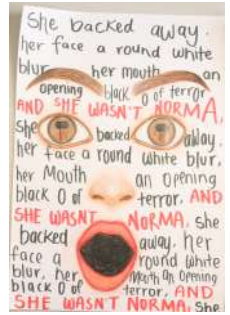 She backed away.
her face a round white
blur, her mouth an
opening black O of terror
AND SHE WASN'T NORMA,
She backed away.
her face a round white blur,
her Mouth an Opening
black O of terror, AND
SHE WASNT NORMA, She
backed away. her
face a round white
blur, her mouth an Opening
black O of terror, AND
SHE WASN'T NORMA, She